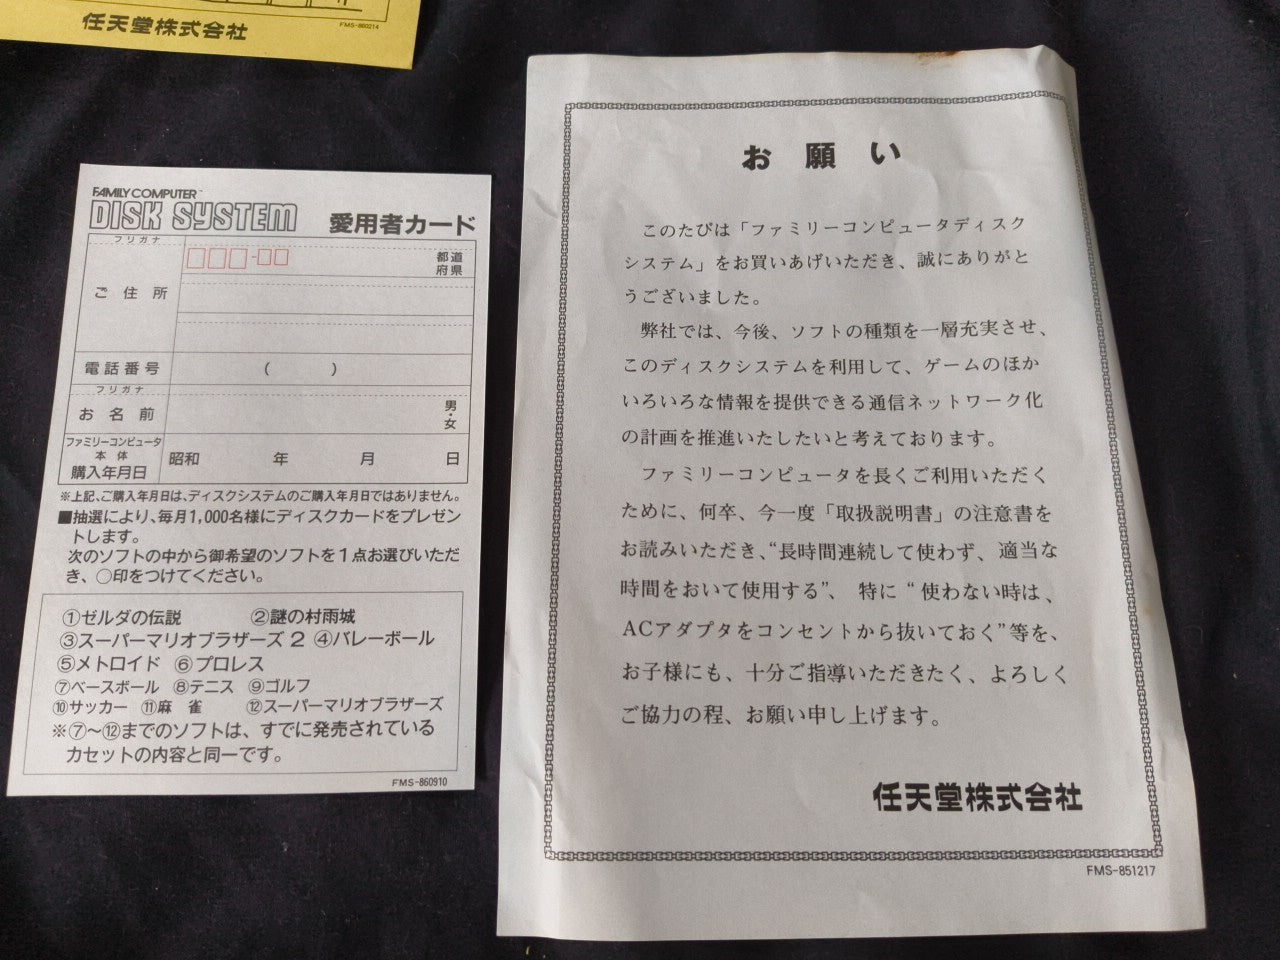 任天堂株式会社
FMS-860214
FAMILY COMPUTER™
DISK SYSTEM 愛用者カード
フリガナ
ご住所
都道
府県
電話番号 ( )
フリガナ
お名前
男・女
ファミリーコンピュータ
本体
購入年月日
昭和 年 月 日
※上記、ご購入年月日は、ディスクシステムのご購入年月日ではありません。
■抽選により、毎月1,000名様にディスクカードをプレゼン
トします。
次のソフトの中から御希望のソフトを1点お選びいただ
き、○印をつけてください。
①ゼルダの伝説 ②謎の村雨城
③スーパーマリオブラザーズ2 ④バレーボール
⑤メトロイド ⑥プロレス
⑦ベースボール ⑧テニス ⑨ゴルフ
⑩サッカー ⑪麻雀 ⑫スーパーマリオブラザーズ
※⑦〜⑫までのソフトは、すでに発売されている
カセットの内容と同一です。
FMS-860910
お願い
このたびは「ファミリーコンピュータディスク
システム」をお買いあげいただき、誠にありがと
うございました。
弊社では、今後、ソフトの種類を一層充実させ、
このディスクシステムを利用して、ゲームのほか
いろいろな情報を提供できる通信ネットワーク化
の計画を推進いたしたいと考えております。
ファミリーコンピュータを長くご利用いただく
ために、何卒、今一度「取扱説明書」の注意書を
お読みいただき、“長時間連続して使わず、適当な
時間をおいて使用する”、特に“使わない時は、
ACアダプタをコンセントから抜いておく”等を、
お子様にも、十分ご指導いただきたく、よろしく
ご協力の程、お願い申し上げます。
任天堂株式会社
FMS-851217